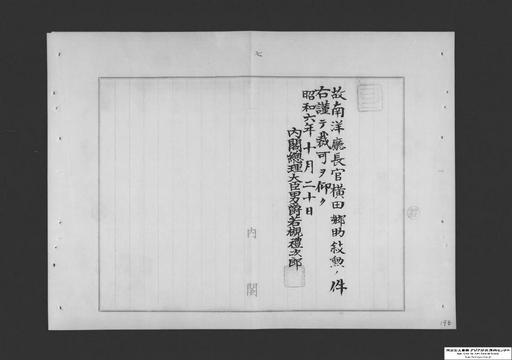 七
故南洋廳長官横田郷助敍勲ノ件
右謹テ裁可ヲ仰ク
昭和六年十月二十日
内閣總理大臣男爵若槻禮次郎
内閣